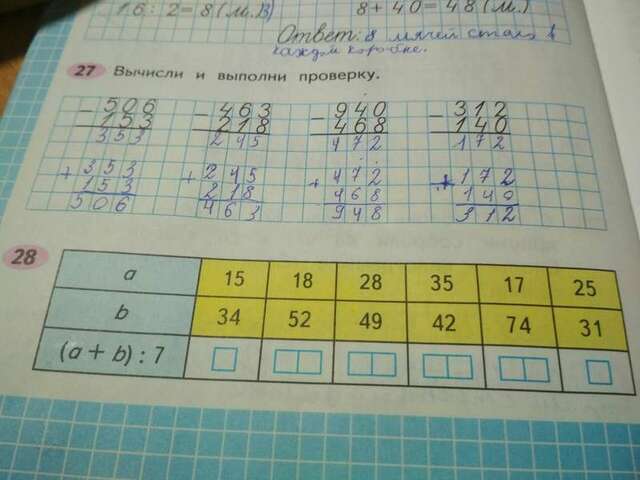 16 : 2 = 8 (м.В) 8 + 40 = 48 (м.)
Ответ: 8 мячей стало в
каждом коробке.
27 Вычисли и выполни проверку.
- 506 - 463 - 940 - 312
153 218 468 140
353 245 472 172
+ 353 + 245 + 472 + 172
153 218 468 140
506 463 948 312
28
a 15 18 28 35 17 25
b 34 52 49 42 74 31
(a + b) : 7